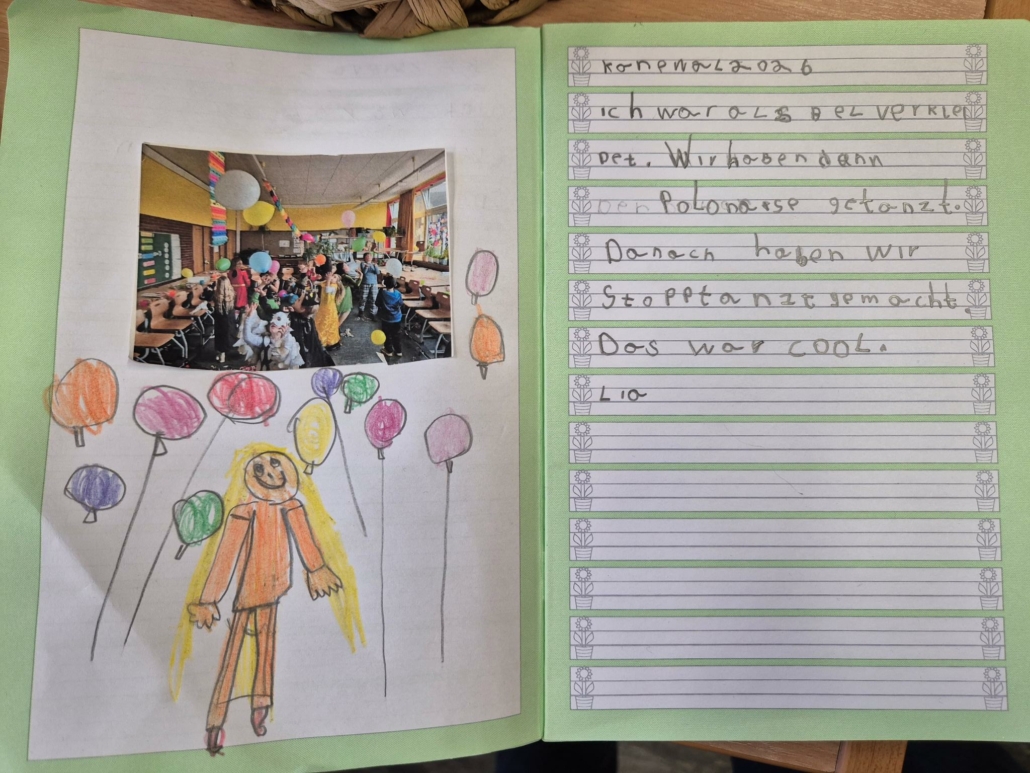 Konewal 2026
Ich war als Bel verklei
Det. Wir haben dann
Den Polonaise getanzt.
Danach haben wir
Stopptanzt gemacht.
Das war COOL.
Lia